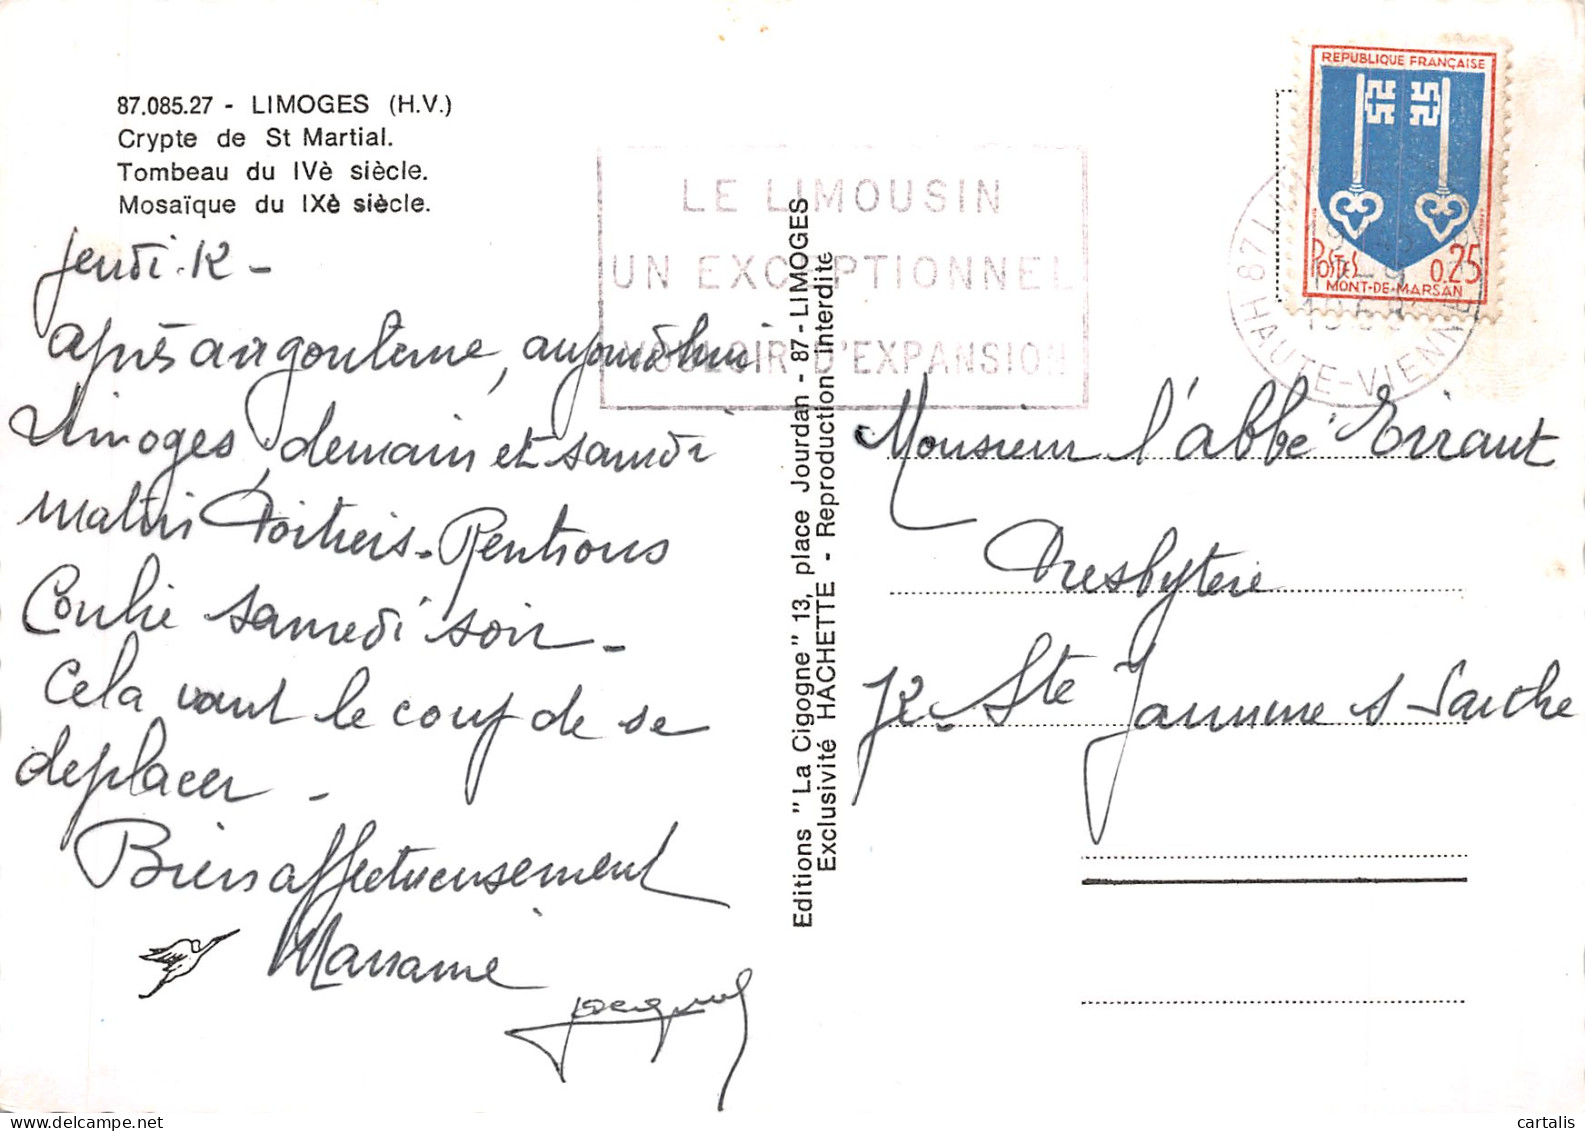 87.085.27 - LIMOGES (H.V.)
Crypte de St Martial.
Tombeau du IVè siècle.
Mosaïque du IXè siècle.
Jeudi 12 -
après angouleme, aujourd'hui
Limoges, demain et samedi
matin Poitiers - Rentrons
Conlie samedi soir -
Cela vaut le coup de se
deplacer -
Bien affectueusement
Jacques
Editions "La Cigogne" 13, place Jourdan - 87 - LIMOGES
Exclusivité HACHETTE - Reproduction interdite
LE LIMOUSIN
UN EXCEPTIONNEL
VOULOIR D'EXPANSION
REPUBLIQUE FRANÇAISE
POSTES 0.25
MONT-DE-MARSAN
87
HAUTE-VIENNE
Monsieur l'abbé Errant
Presbytère
72 - Ste Jammme s Sarthe
cartalis